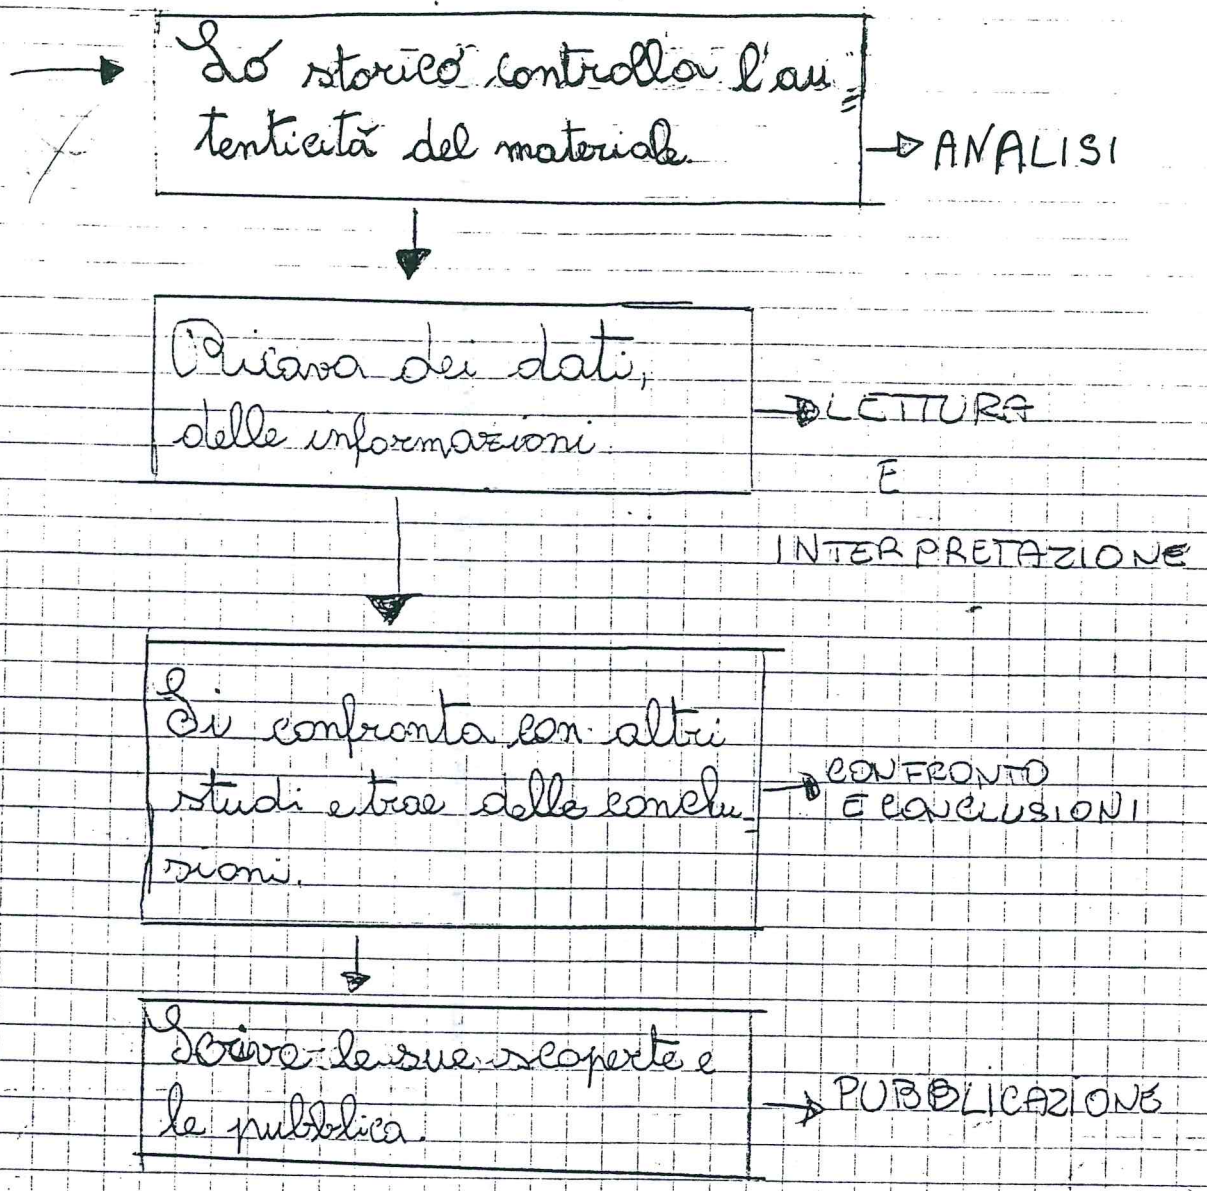 Lo storico controlla l'au=
tenticità del materiale.
ANALISI
Ricava dei dati,
delle informazioni.
LETTURA
E
INTERPRETAZIONE
Si confronta con altri
studi e trae delle conclu=
sioni.
CONFRONTO
E CONCLUSIONI
Scrive le sue scoperte e
le pubblica.
PUBBLICAZIONE